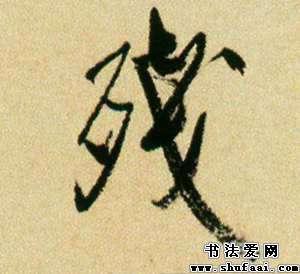 残
书法爱网
www.shufaai.com